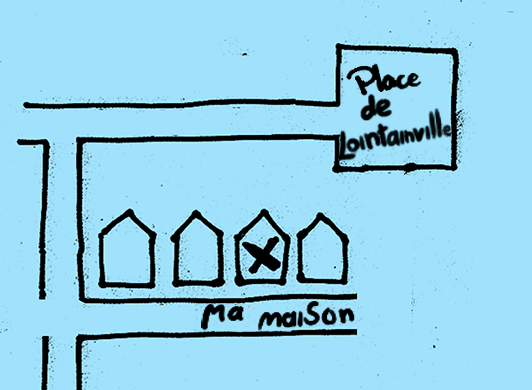 Place
de
Lointainville
Ma maison